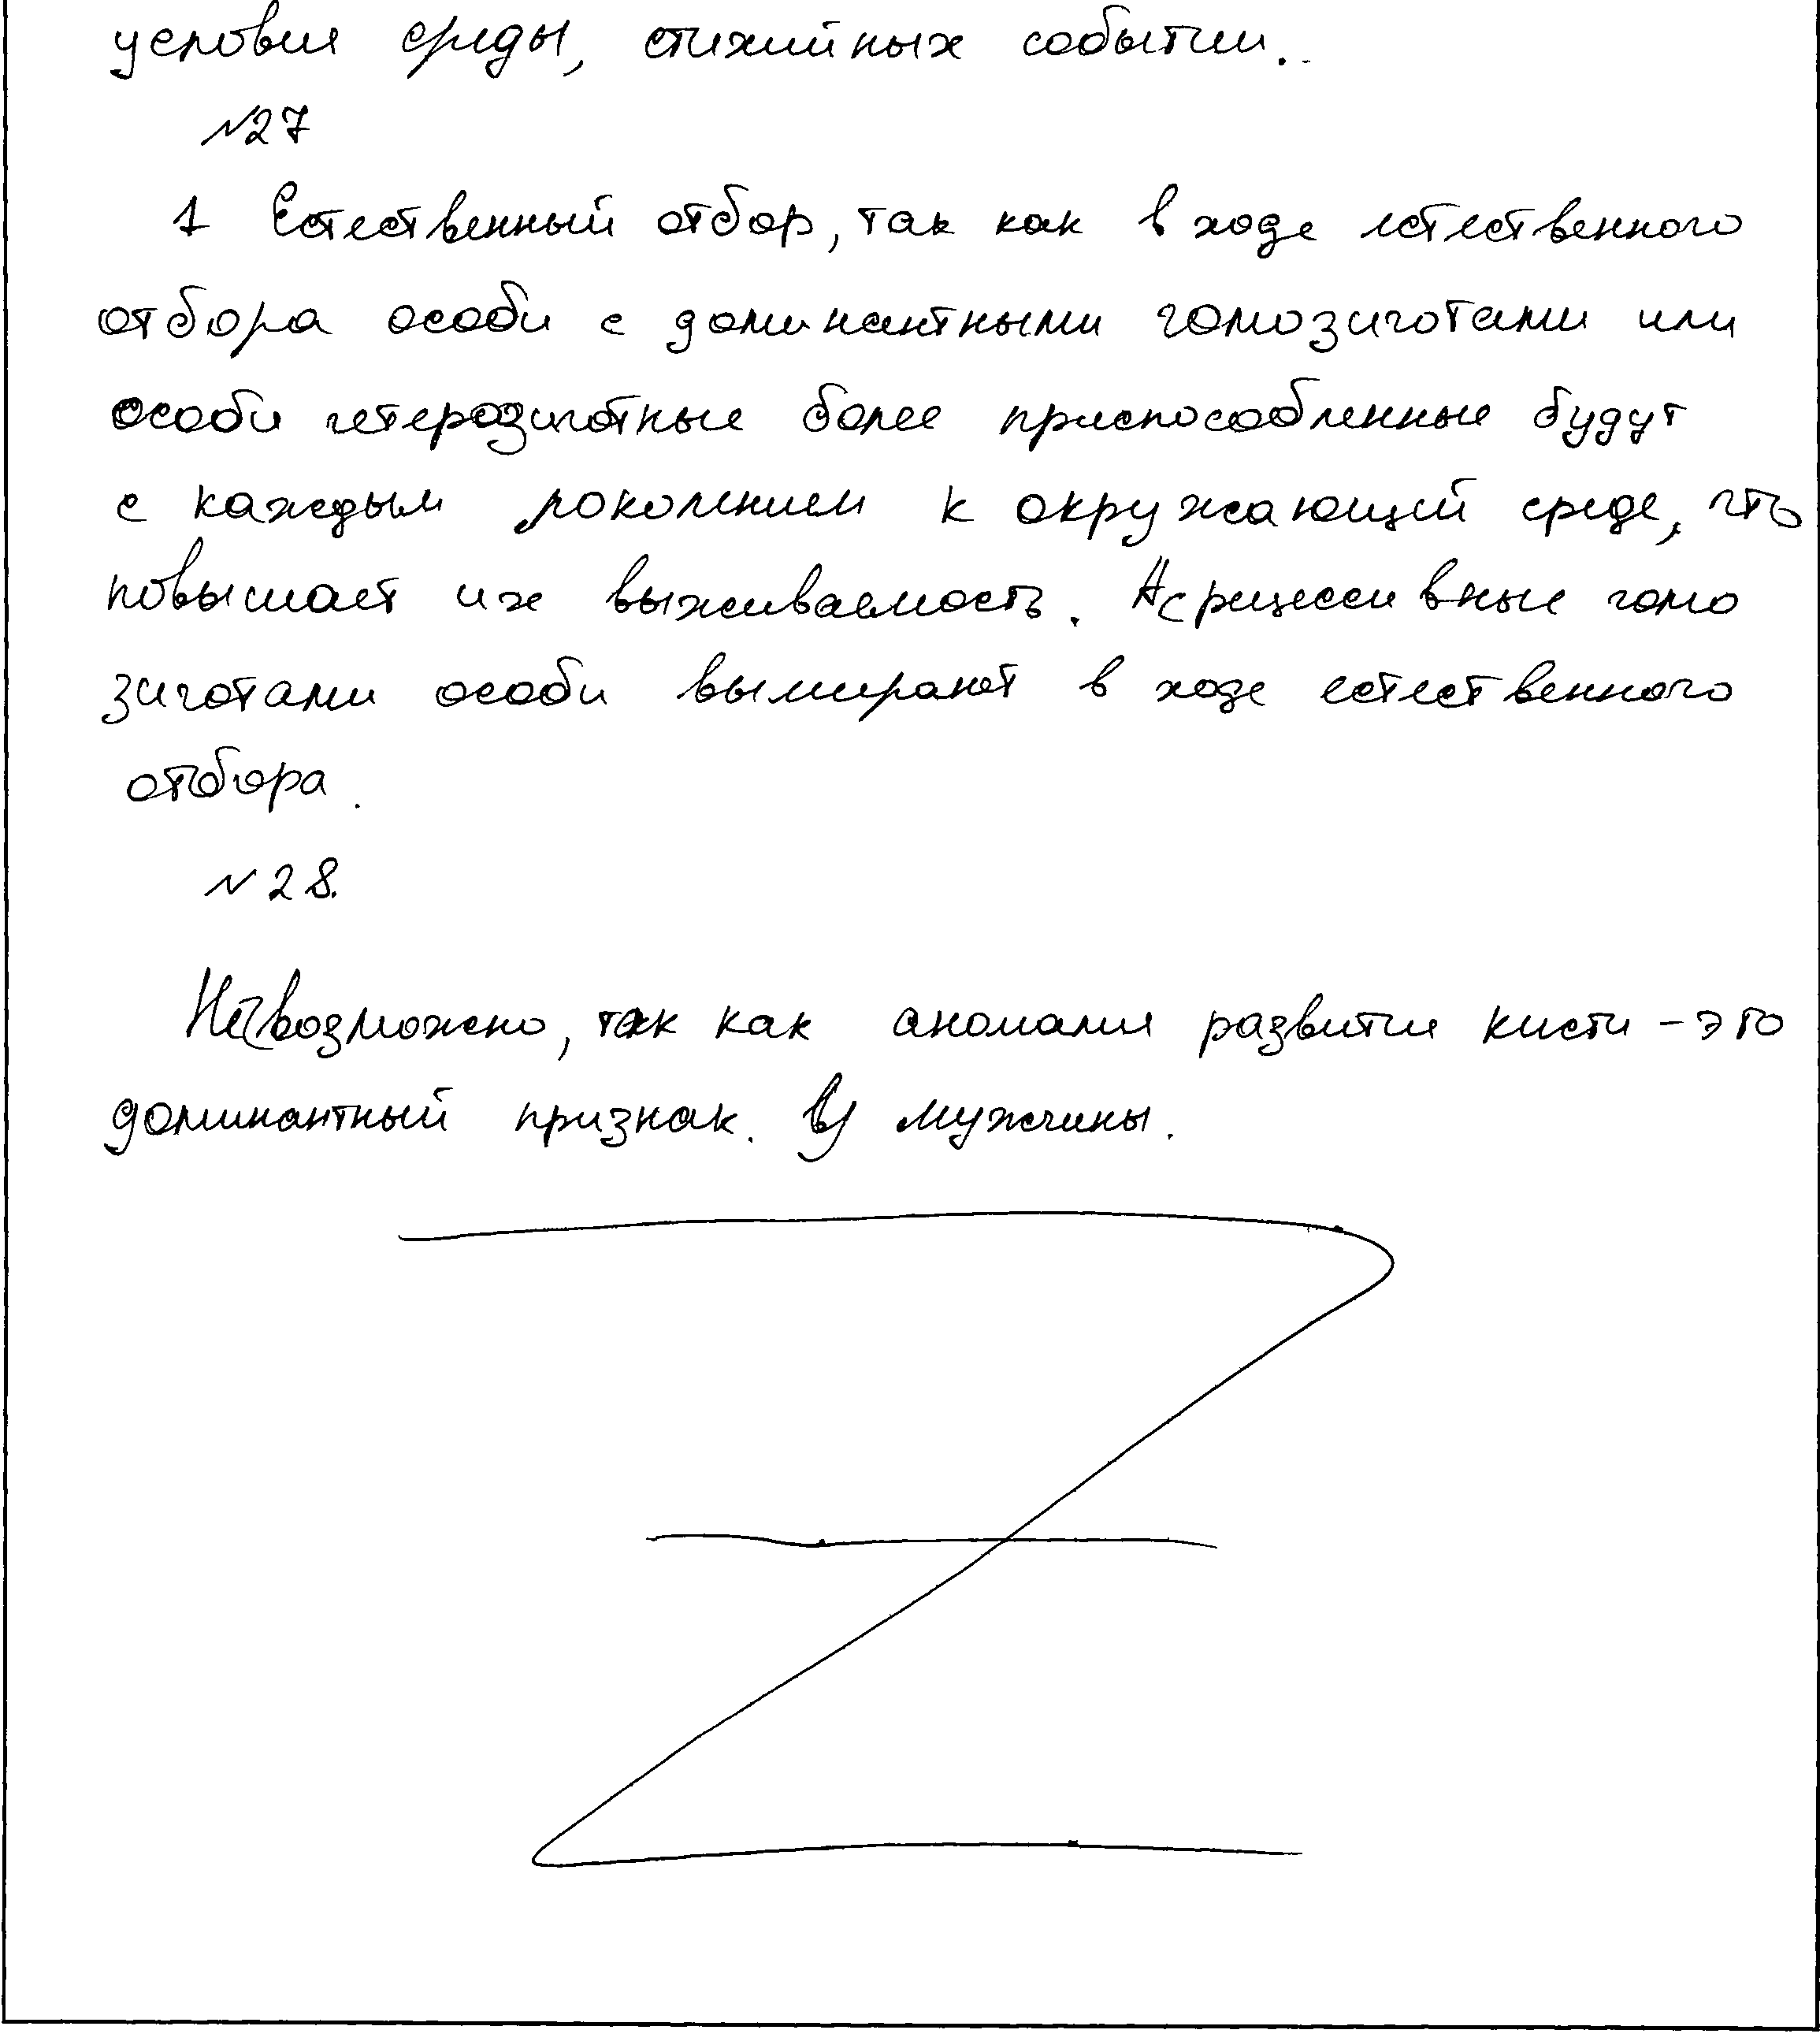 условия среды, стихийных событии..
№27
1 Естественный отбор, так как в ходе естественного
отбора особи с доминантными гомозиготами или
особи гетерозиготные более приспособленные будут
с каждым поколением к окружающий среде, что
повышает их выживаемость. Ас рецессивные гомо
зиготами особи вымирают в ходе естественного
отбора.
№28.
Невозможно, так как аномалия развития кисти - это
доминантный признак. Ву мужчины.